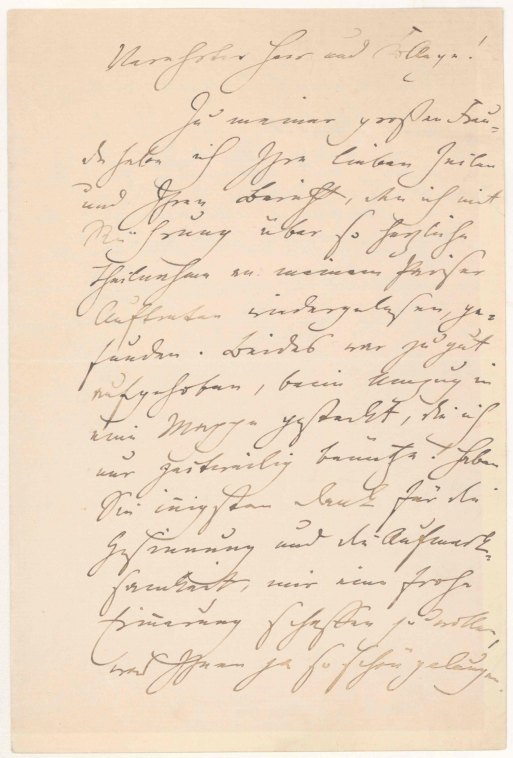 Verehrter Herr und College!
Zu meiner großen Freu-
de habe ich Ihre lieben Zeilen
und Ihren Bericht, den ich mit
Rührung über so herzliche
Theilnahme an meinem Pariser
Auftreten wiedergelesen, ge-
funden. Beides war zu gut
aufgehoben, beim Umzug in
eine Mappe gesteckt, die ich
nur zeitweilig benütze! Haben
Sie innigsten Dank für die
Gesinnung und die Aufmerk-
samkeit, mir eine frohe
Erinnerung schaffen zu wollen,
was Ihnen ja so schön gelungen.